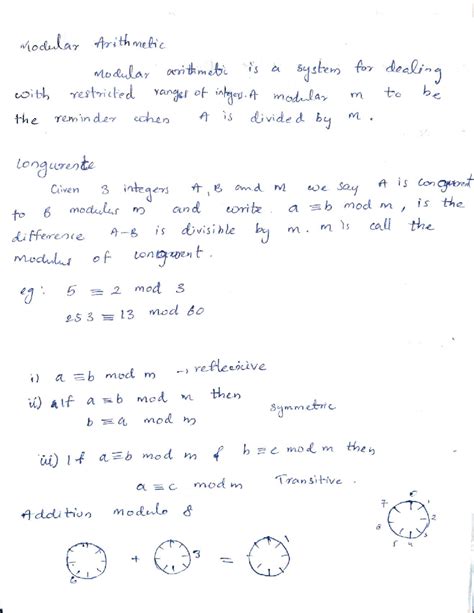 Modular Arithmetic
Modular arithmetic is a system for dealing
with restricted ranges of intgers. A modular m to be
the reminder when A is divided by m.
Congurente
Given 3 integers A, B and M we say A is congurent
to B modulus m and write a ≡ b mod m, is the
difference A-B is divisible by m. m is call the
modulus of congurent.
eg: 5 ≡ 2 mod 3
253 ≡ 13 mod 60
i) a ≡ b mod m → reflexive
ii) If a ≡ b mod m then
b ≡ a mod m symmetric
iii) If a ≡ b mod m & b ≡ c mod m then
a ≡ c mod m Transitive.
Addition modulo 8
7 1
2
3
5 4
+ 3 = 1
6